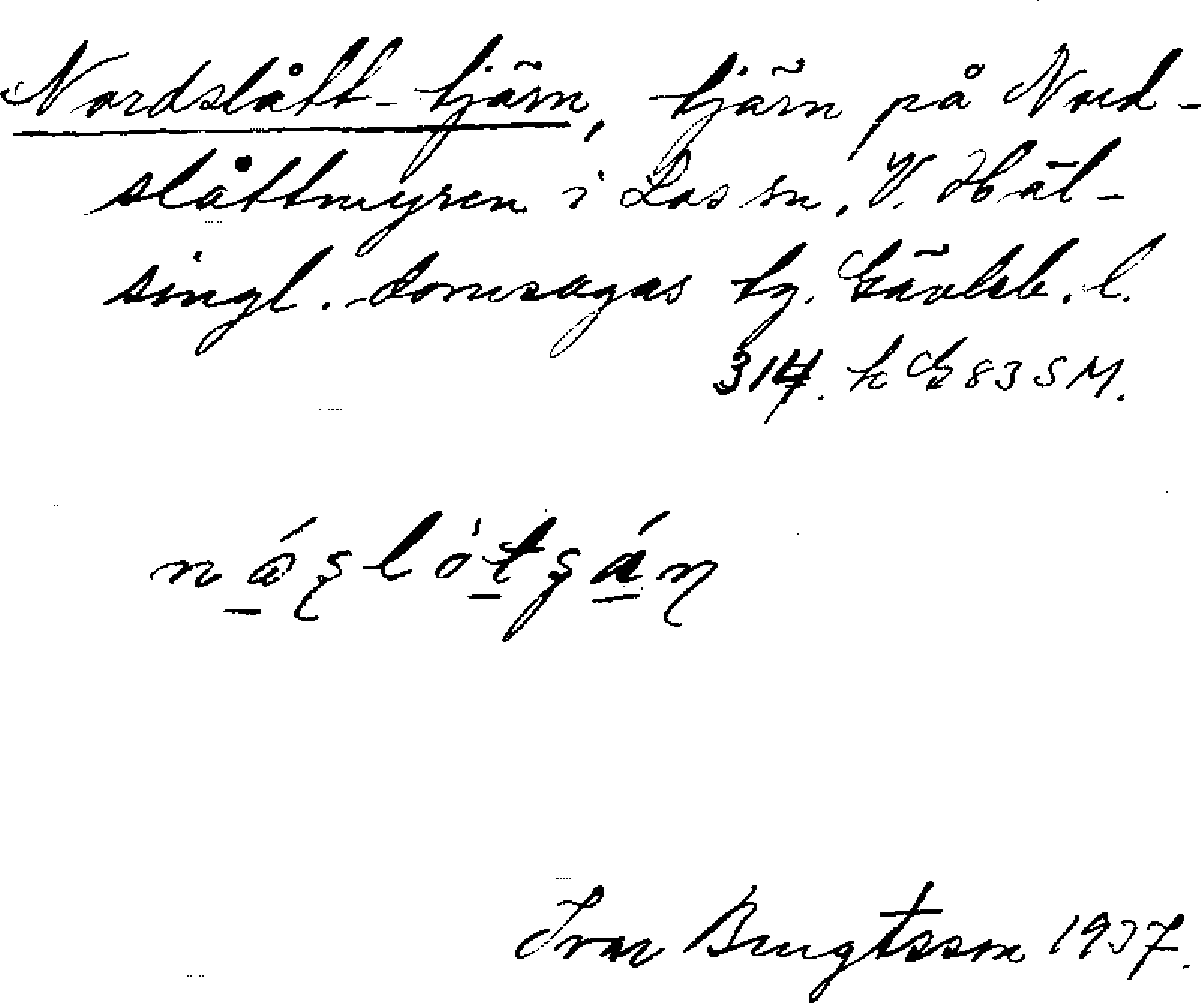 Nordslått-tjärn, tjärn på Nord-
slåttmyren i Los sn, V. Häl-
singl. domsagas tg. Gävleb. l.
314. k G 83 SM.
Ivar Bengtsson 1937.